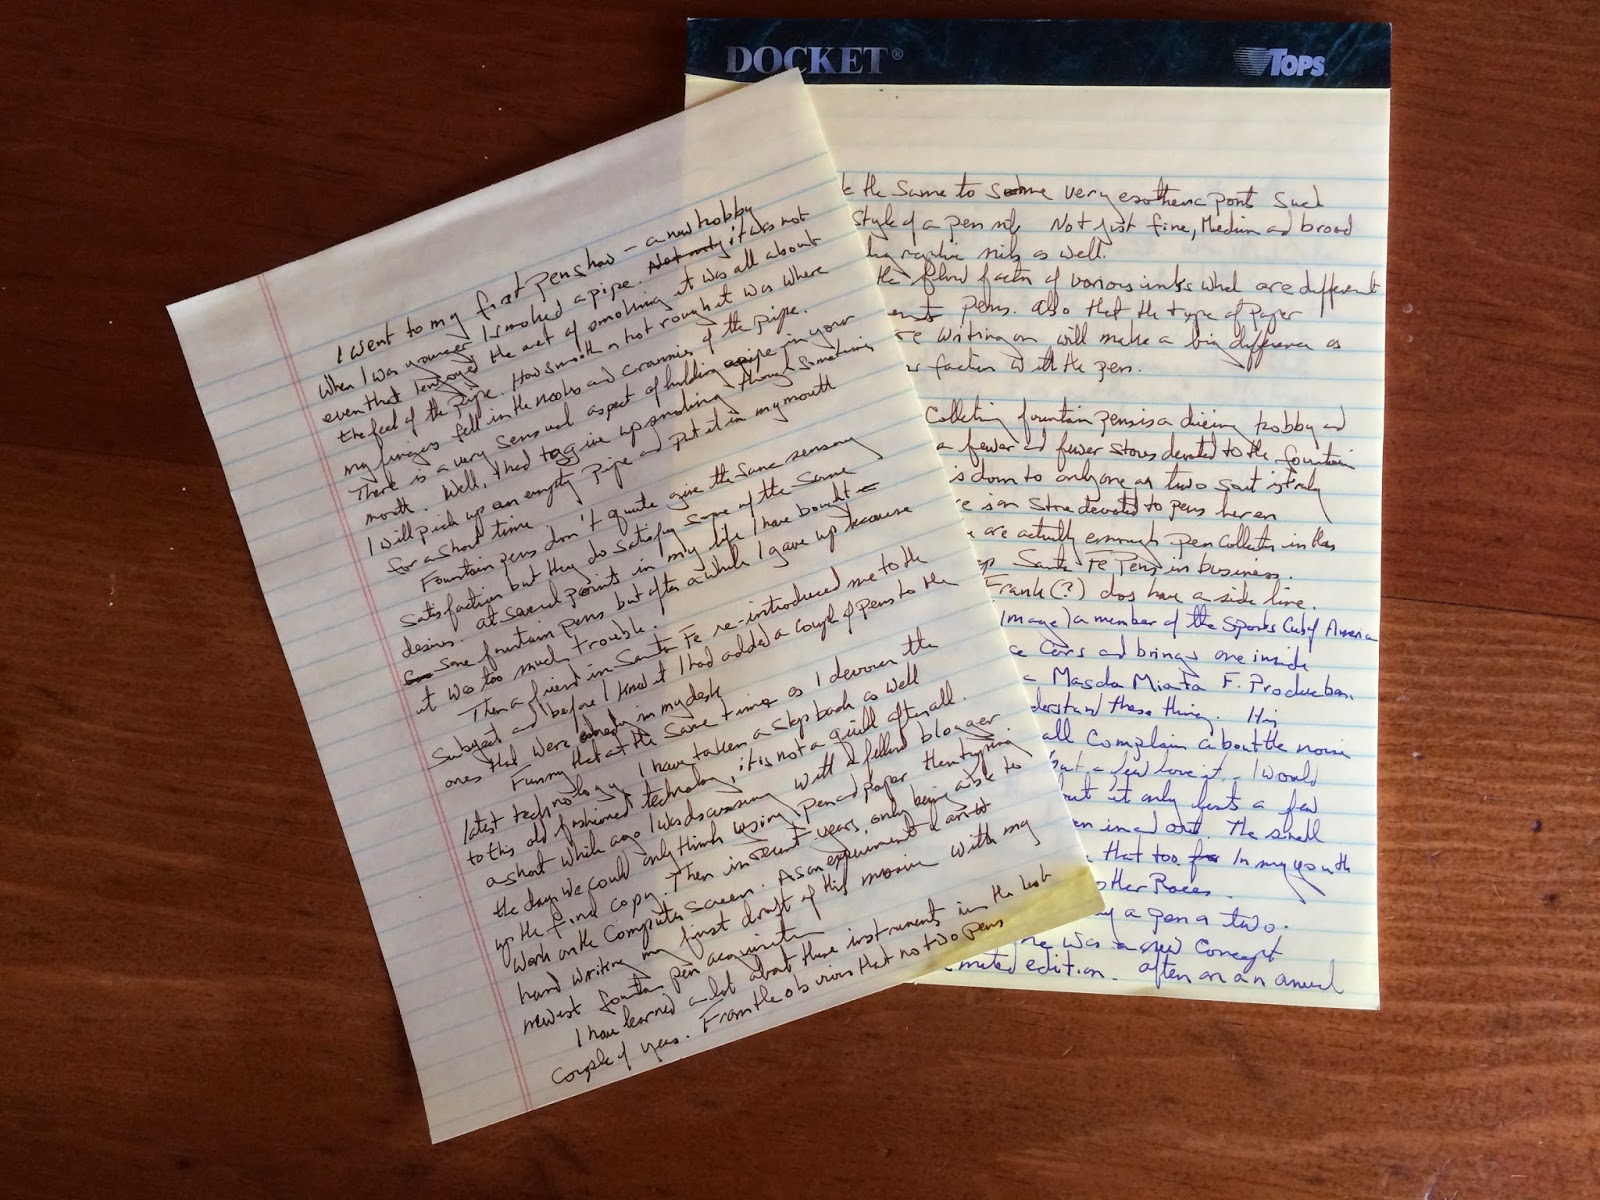 I went to my first pen show – a new hobby
When I was younger I smoked a pipe. Not only it was not
even that I enjoyed the act of smoking it was all about
the feel of the pipe. How smooth or not rough it was where
my fingers fell in the nooks and crannies of the pipe.
There is a very sensual aspect of holding a pipe in your
mouth. Well, I had to give up smoking though sometimes
I will pick up an empty pipe and put it in my mouth
for a short time.
Fountain pens don't quite give the same sensory
satisfaction but they do satisfy some of the same
desires. At several points in my life I have bought
some fountain pens but after a while I gave up because
it was too much trouble.
Then a friend in Santa Fe re-introduced me to the
subject and before I knew it I had added a couple of pens to the
ones that were in my desk
Funny that at the same time as I devour the
latest technology, I have taken a step back as well
to this old fashioned technology, it is not a quill after all.
a short while ago I was discussing with a fellow blogger
the days we could only think using pen and paper then typing
up the final copy. Then in recent years, only being able to
work on the computer screen. As an experiment I am
hand writing my first draft of this missive with my
newest fountain pen acquisition
I have learned a lot about these instruments in the last
couple of years. From the obvious that no two pens
DOCKET® TOPS
the same to some very esoteric points such
style of a pen nib. Not just fine, Medium and broad
nibs as well.
the flow factor of various inks what are different
pens. Also that the type of paper
writing on will make a big difference as
faction with the pen.
Collecting fountain pens is a dieing hobby and
a fewer and fewer stores devoted to the fountain
is down to only one or two so it is truly
is an store devoted to pens here in
are actually enough pen collectors in this
Santa Fe Pens in business.
Frank(?) does have a side line.
image) a member of the Sports Car of America
Cars and brings one inside
a Masda Miata F. Production.
derstand these things. His
all complain about the noise
but a few love it. I would
but it only lasts a few
en in and out. The smell
that too for In my youth
other Races.
a pen or two.
was a new concept
limited edition. often on an annual